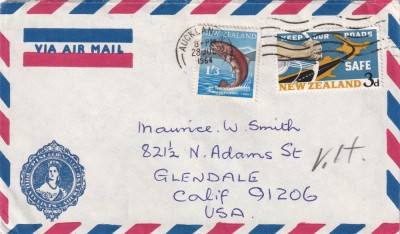 VIA AIR MAIL
AUCKLAN
8-PM
28 JUL
1964
NEW ZEALAND
1/3
KEEP OUR ROADS
SAFE
NEW ZEALAND 3d
Maurice W. Smith
821½ N. Adams St
GLENDALE
Calif 91206
USA.
V.H.